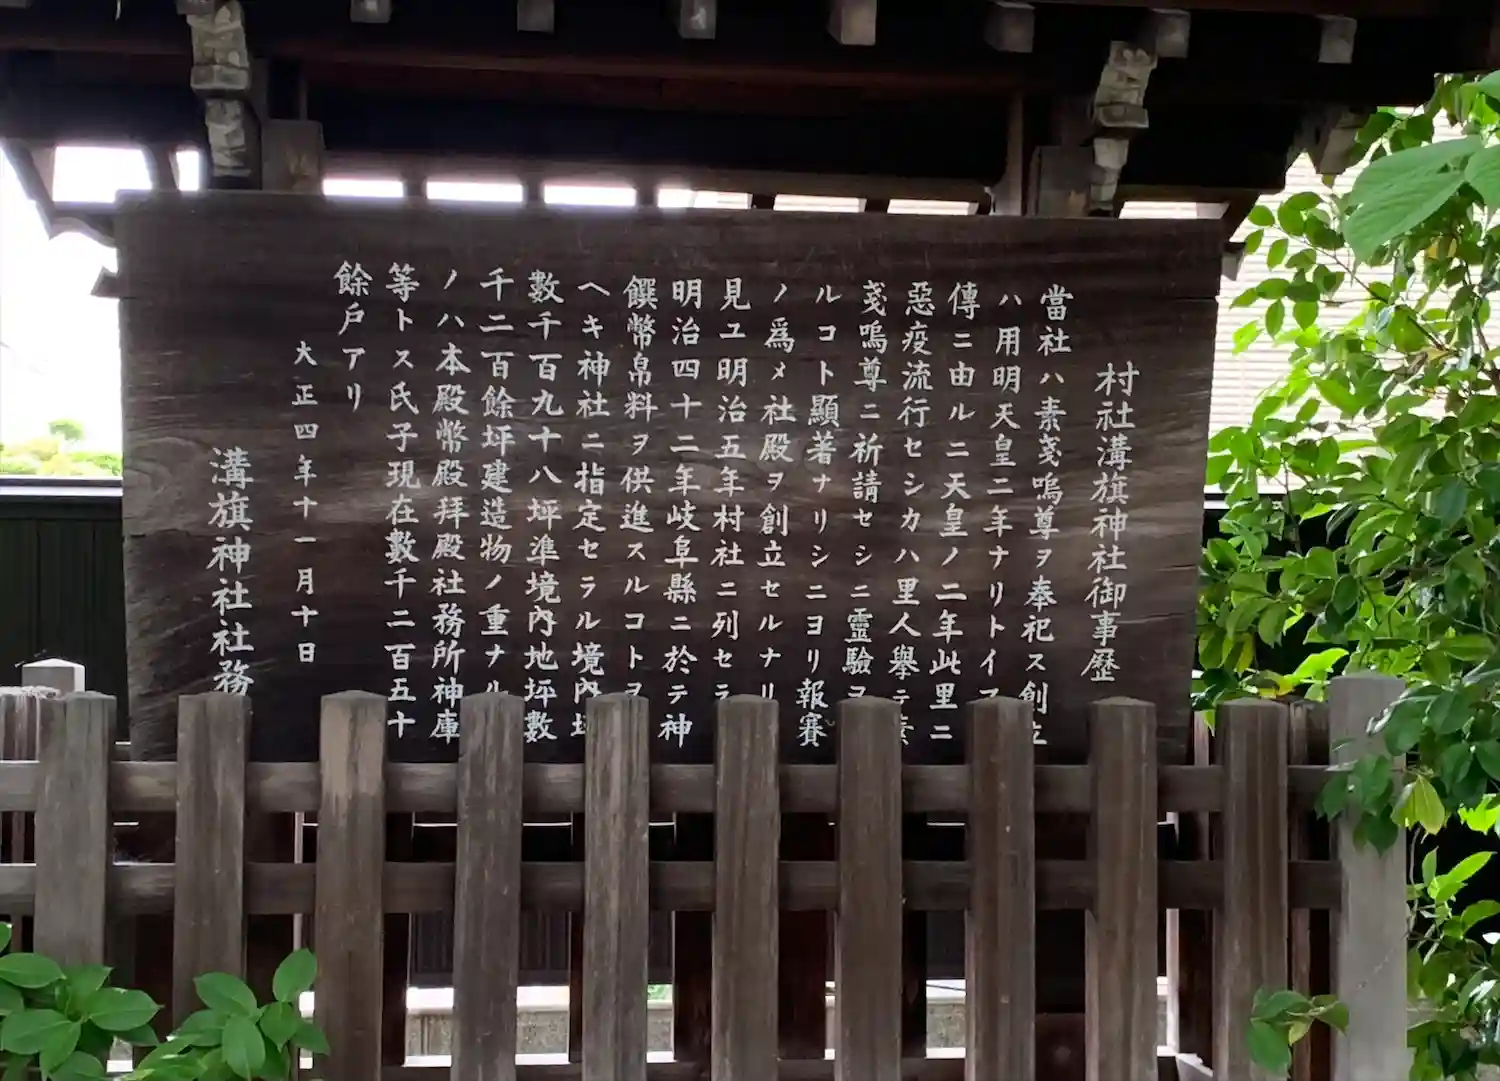 村社溝旗神社御事歴
當社ハ素戔嗚尊ヲ奉祀ス創立
ハ用明天皇二年ナリトイフ
傳ニ由ルニ天皇ノ二年此里ニ
惡疫流行セシカハ里人擧テ素
戔嗚尊ニ祈請セシニ靈驗ヲ
ルコト顯著ナリシニヨリ報賽
ノ爲メ社殿ヲ創立セルナリ
見ユ明治五年村社ニ列セラ
明治四十二年岐阜縣ニ於テ神
饌幣帛料ヲ供進スルコトヲ
ヘキ神社ニ指定セラル境內坪
數千百九十八坪準境內地坪數
千二百餘坪建造物ノ重ナル
ノハ本殿幣殿拜殿社務所神庫
等トス氏子現在數千二百五十
餘戶アリ
大正四年十一月十日
溝旗神社社務